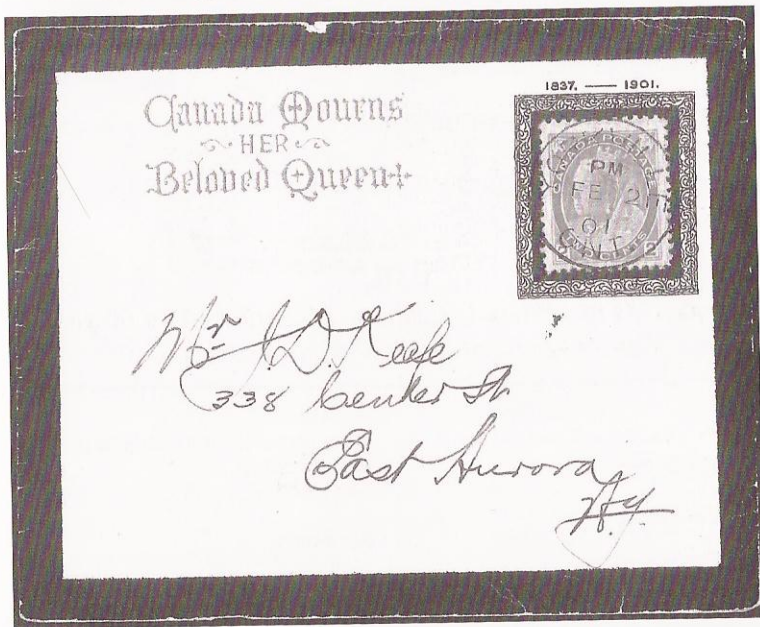 Canada Mourns
HER
Beloved Queen
1837. — 1901.
CANADA POSTAGE
PM
FE 27
01
ONT.
2
Mr J. D. Keefe
338 Center St.
East Aurora
N.Y.